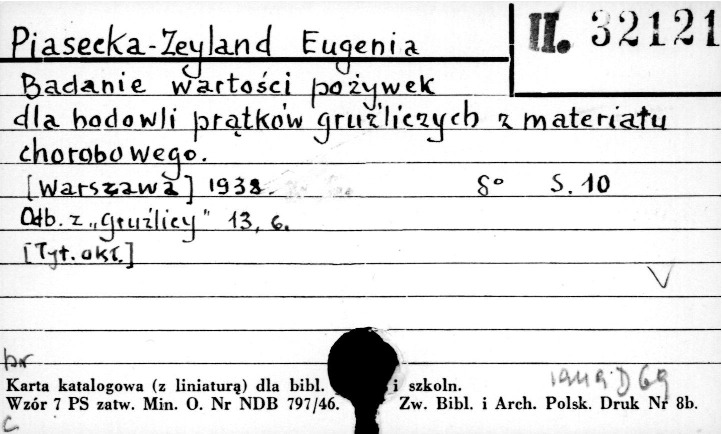 Piasecka-Zeyland Eugenia
II. 32121
Badanie wartości pożywek
dla hodowli prątków gruźliczych z materiału
chorobowego.
[Warszawa] 1938. 8° S. 10
Odb. z „Gruźlicy" 13, 6.
[Tyt. okł.]
pr
Karta katalogowa (z liniaturą) dla bibl. i szkoln.
Wzór 7 PS zatw. Min. O. Nr NDB 797/46. Zw. Bibl. i Arch. Polsk. Druk Nr 8b.
C